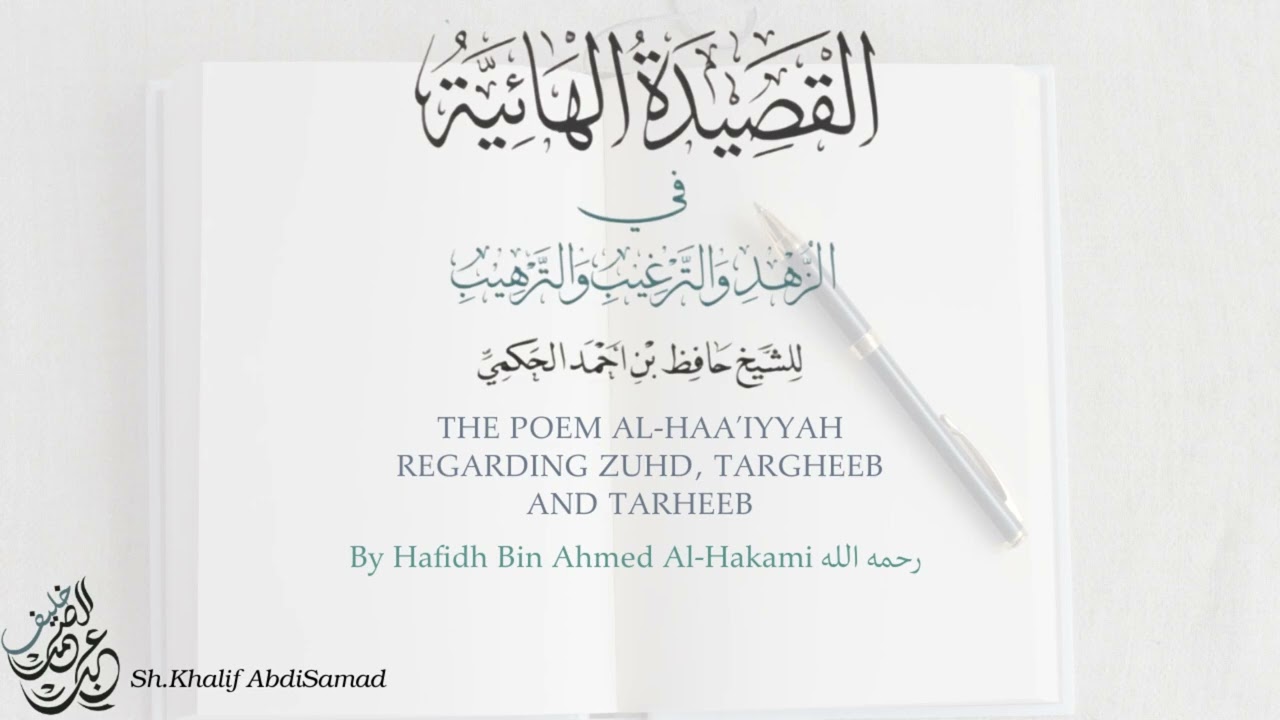 القَصِيدَةُ الهَائِيَّةُ
في
الزُّهْدِ وَالتَّرْغِيبِ وَالتَّرْهِيبِ
لِلشَّيْخِ حَافِظ بْنِ أَحْمَدَ الحَكَمِيِّ
THE POEM AL-HAA’IYYAH
REGARDING ZUHD, TARGHEEB
AND TARHEEB
By Hafidh Bin Ahmed Al-Hakami رحمه الله
خليف
عبد الصمد
Sh.Khalif AbdiSamad